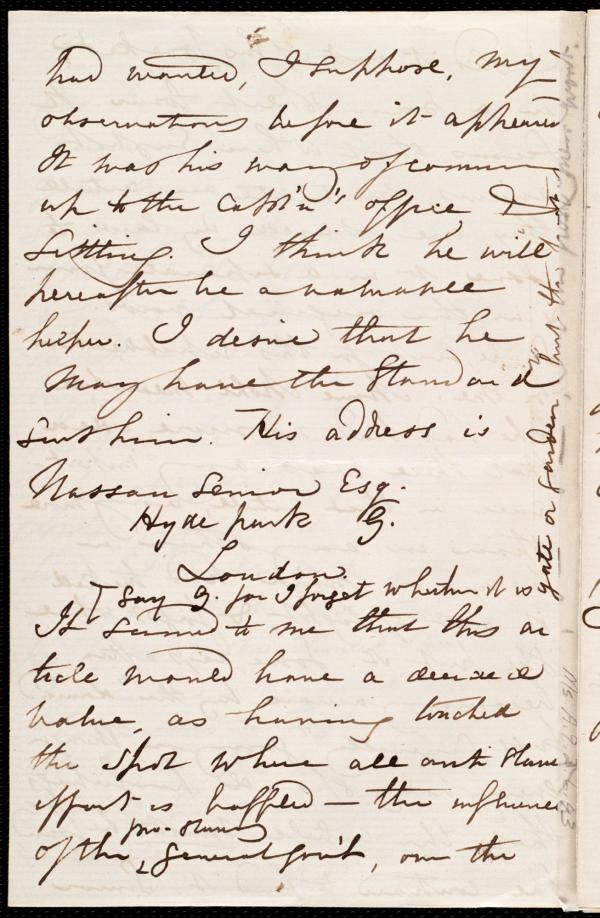 had wanted, I suppose, my
observations before it appeared
It was his way of coming
up to the Capt'n's office &
Settling. I think he will
hereafter be a valuable
helper. I desire that he
may have the Standard
sent him. His address is
Nassau Senior Esq.
Hyde park G.
London.
I say G. for I forget whether it is
gate or garden, but the post man must
It seemed to me that this ar
ticle would have a decided
value, as having touched
the spot where all anti slave
effort is baffled — the influence
pro-slavery
of the General gov't, over the
Ms. A.9.2